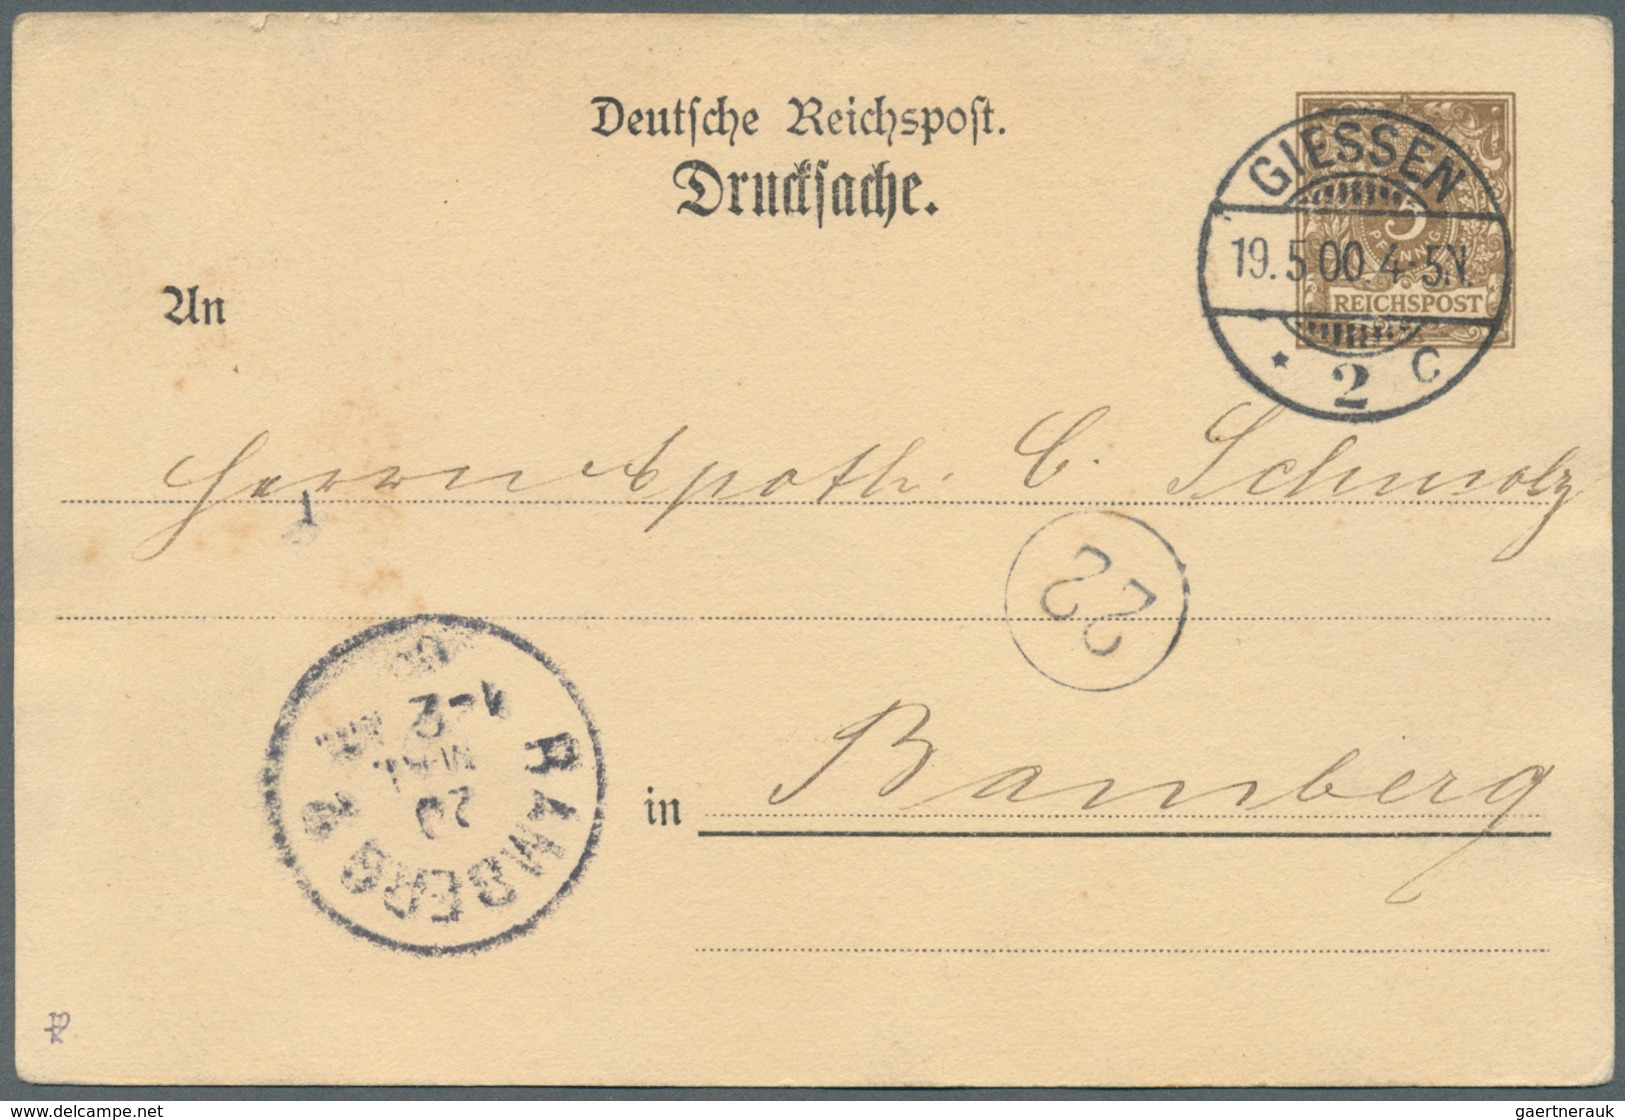 Deutsche Reichspost.
Drucksache.
GIESSEN
19.5.00.4-5N.
* 2 C
3
PFENNIG
REICHSPOST
An
Herrn Apoth. C. Schmolz
22
in Bamberg
BAMBERG 1
20
MAI
1-2
NM
www.delcampe.net
gaertnerauk